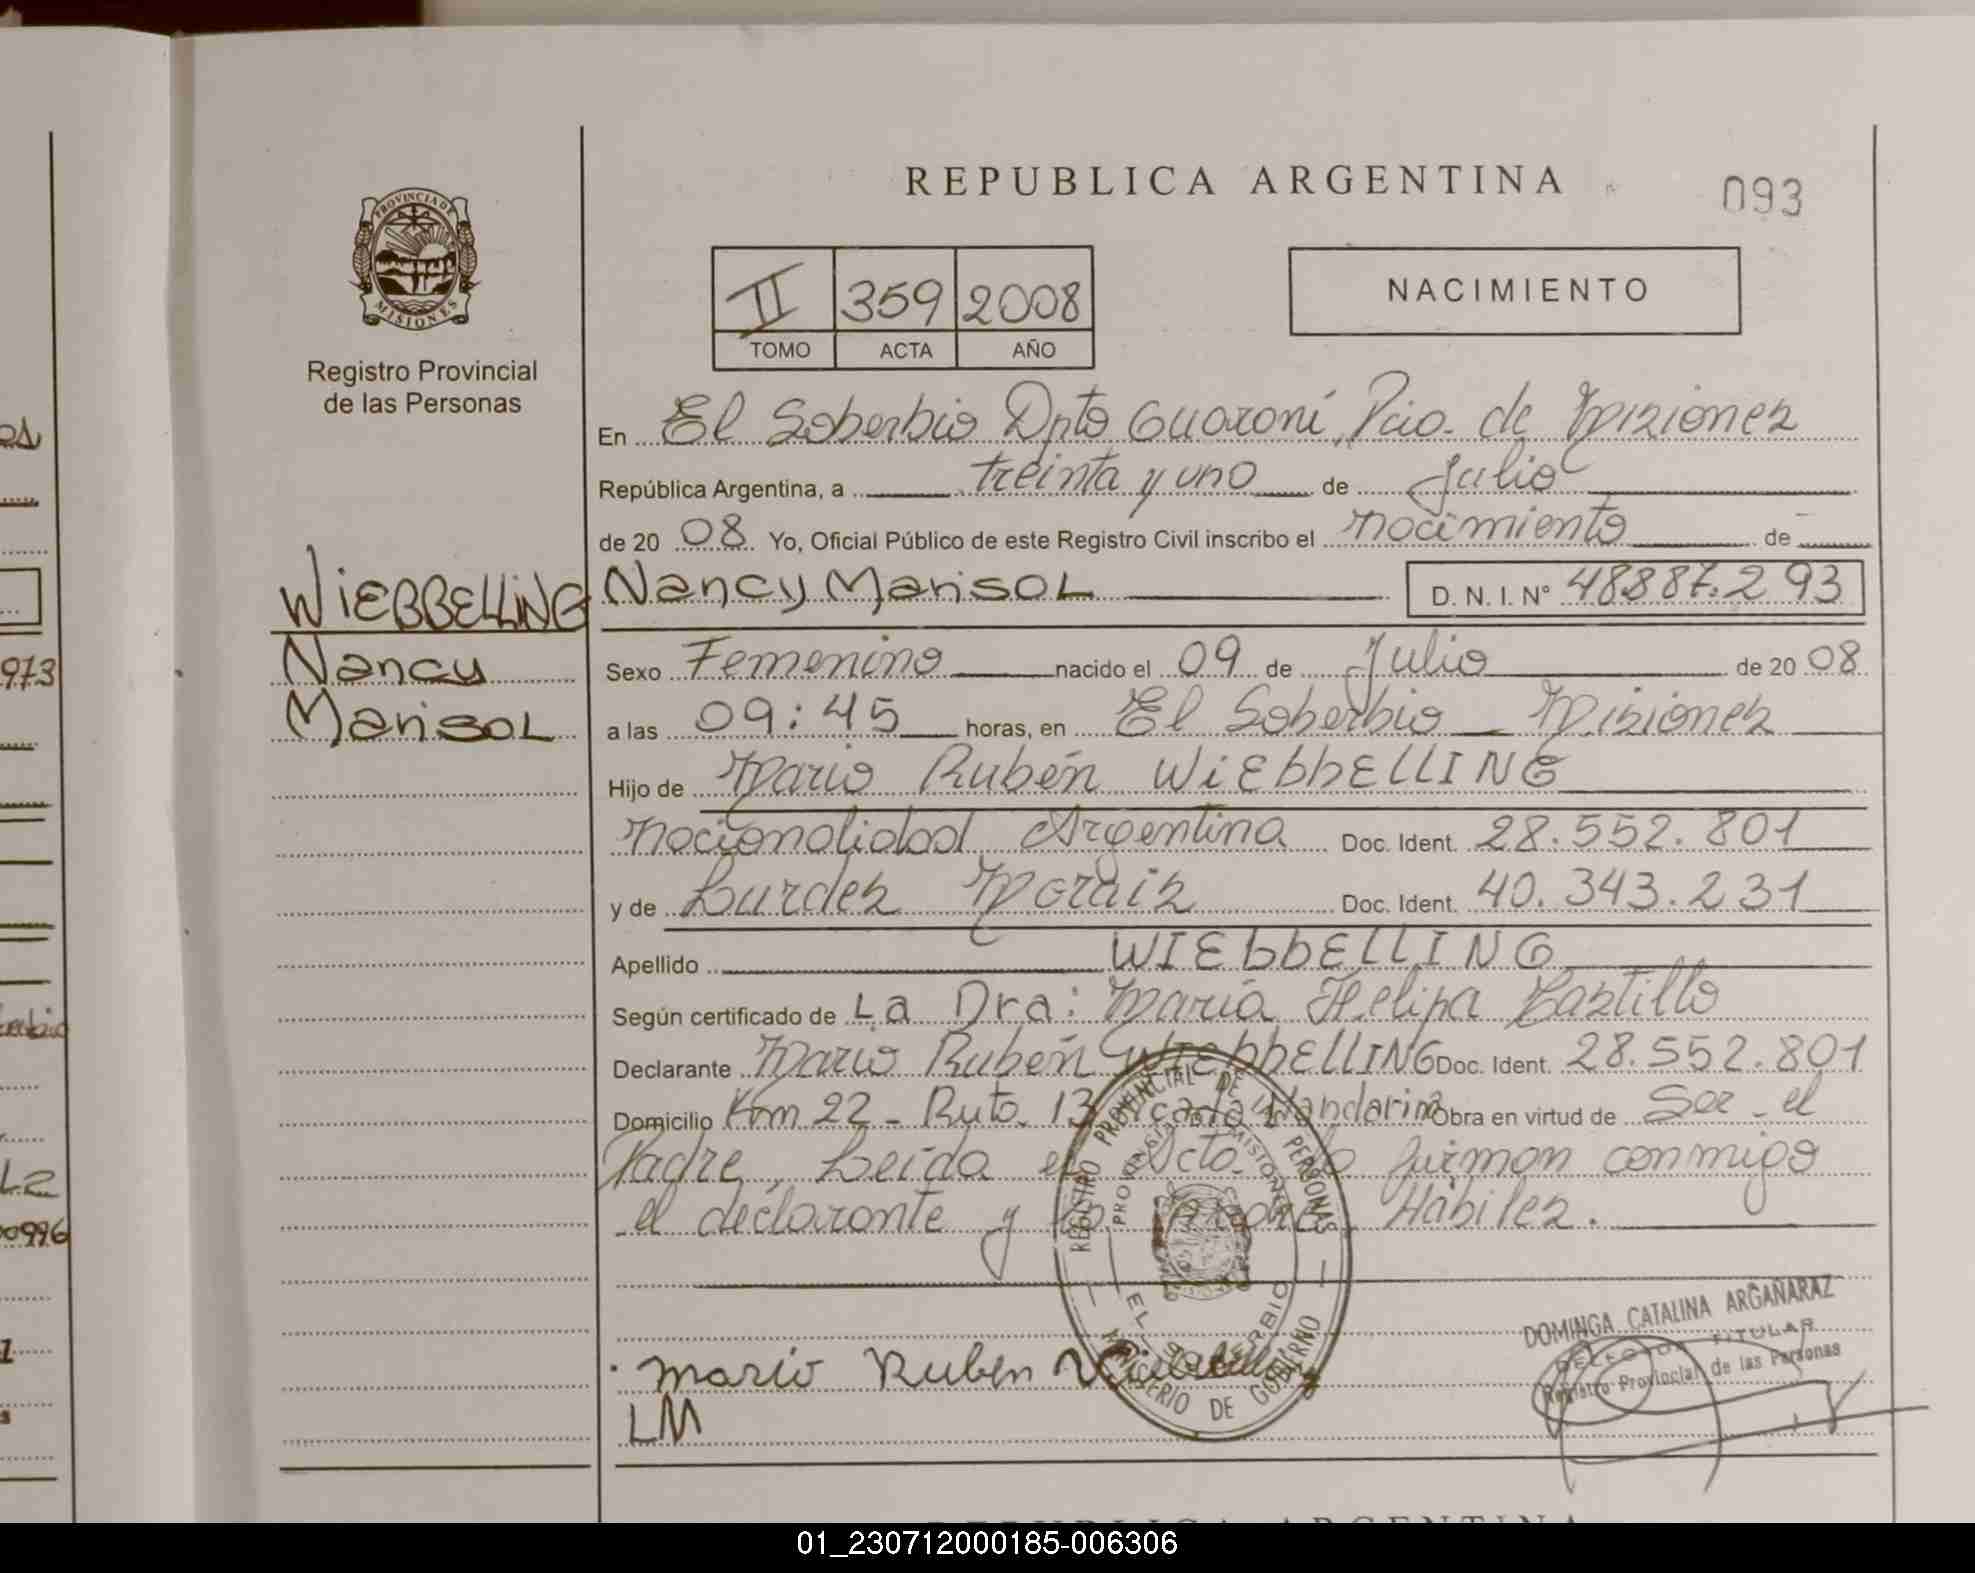 REPUBLICA ARGENTINA
093
PROVINCIA DE
MISIONES
Registro Provincial
de las Personas
II 359 2008
TOMO ACTA AÑO
NACIMIENTO
En El Soberbio Dpto Guaraní, Pcia. de Misiones
República Argentina, a treinta y uno de Julio
de 20 08 Yo, Oficial Público de este Registro Civil inscribo el nacimiento de
WIEBBELLING
Nancy
Marisol
Nancy Marisol D. N. I. Nº 48887.293
Sexo Femenino nacido el 09 de Julio de 20 08
a las 09:45 horas, en El Soberbio - Misiones
Hijo de Mario Rubén WIEbbELLING
Nacionalidad Argentina Doc. Ident. 28.552.801
y de Lurdes Morais Doc. Ident. 40.343.231
Apellido WIEbbELLING
Según certificado de La Dra: María Felipa Castillo
Declarante Mario Rubén WIEbbELLING Doc. Ident. 28.552.801
Domicilio Km 22 - Ruta. 13 Picada Mandarina Obra en virtud de Ser el
Padre, Leída el Acta, lo firman conmigo
el declarante y Hábiles.
REGISTRO PROVINCIAL DE LAS PERSONAS
PROVINCIA DE MISIONES
EL SOBERBIO
MINISTERIO DE GOBIERNO
Mario Ruben
LM
DOMINGA CATALINA ARGAÑARAZ
DELEGADA TITULAR
Registro Provincial de las Personas
973
00996
REPUBLICA ARGENTINA
01_230712000185-006306